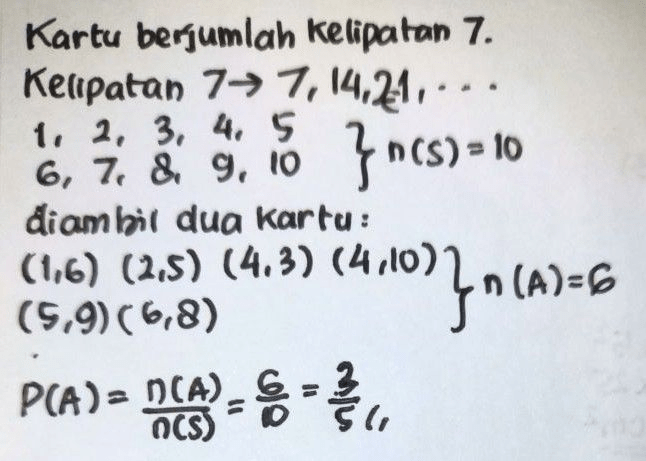 Kartu berjumlah kelipatan 7.
Kelipatan 7→ 7, 14, 21, ...
1, 2, 3, 4, 5
6, 7, 8, 9, 10 } n(S) = 10
diambil dua kartu:
(1,6) (2,5) (4,3) (4,10)
(5,9) (6,8) } n(A) = 6
P(A) = n(A)/n(S) = 6/10 = 3/5 //